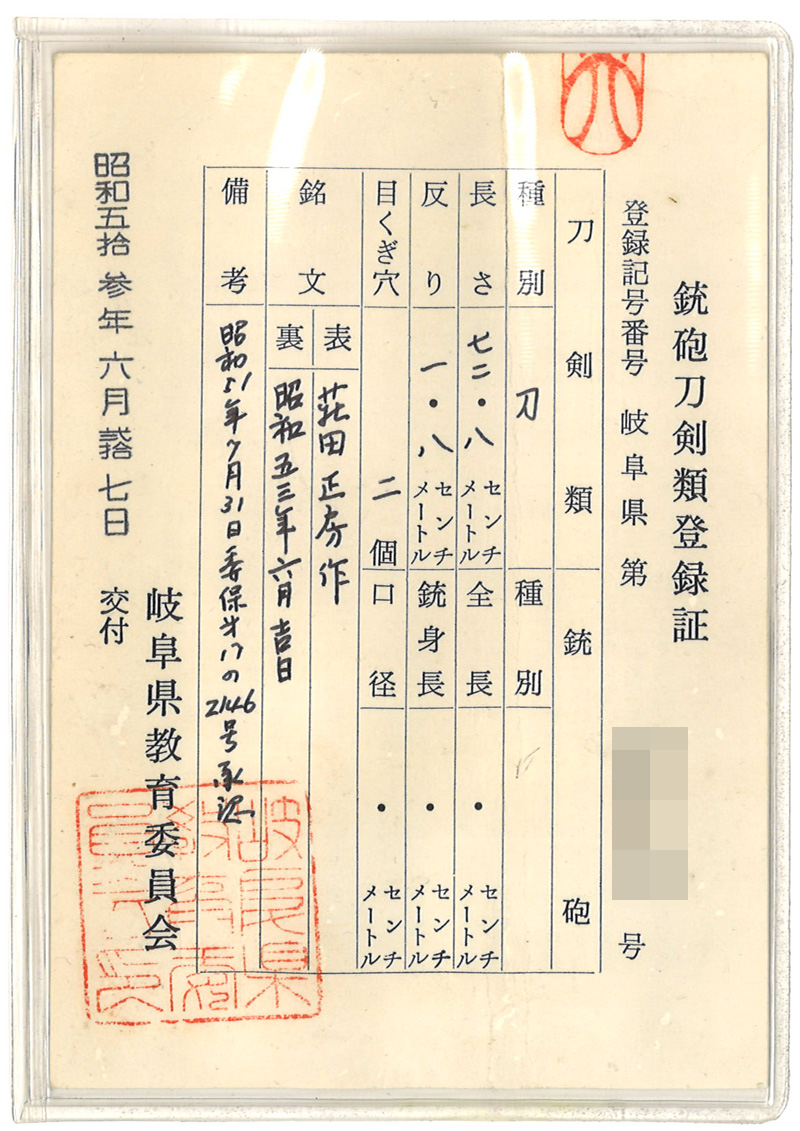 銃砲刀剣類登録証
登録記号番号 岐阜県 第 号
刀剣類 銃砲
種別 刀 種別
長さ 七二・八 センチメートル 全長 ・ センチメートル
反り 一・八 センチメートル 銃身長 ・ センチメートル
目くぎ穴 二 個 口径 ・ センチメートル
銘文 表 荘田正房作
裏 昭和五三年六月吉日
備考 昭和51年7月31日委保第17の2146号承認
昭和五拾参年六月 七日 交付
岐阜県教育委員会
岐阜県
教育委
員会印